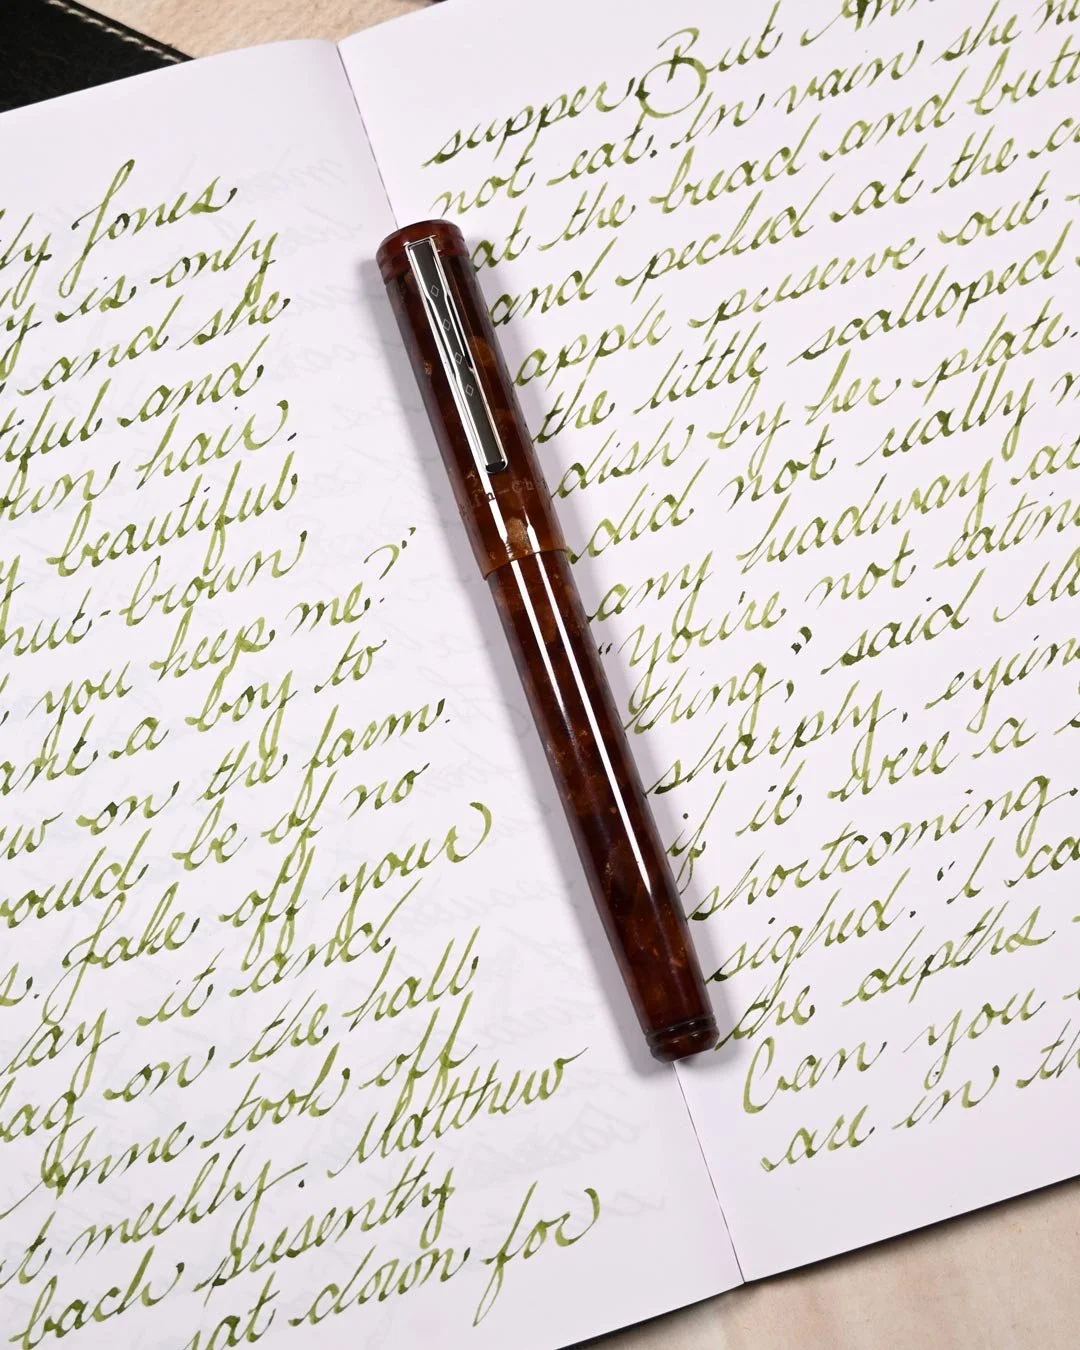 Jones
is only
and she
and
hair.
beautiful
nut-brown
you keep me?
a boy to
on the farm.
would be of no
Take off your
lay it and
bag on the hall
Anne took off
meekly. Matthew
back presently
sat down for
supper. But
not eat. In vain she
at the bread and
and pecked at the
apple preserve out
the little scalloped
dish by her plate.
did not really
any headway at
"You're not
thing," said
sharply, eyeing
if it were a
shortcoming.
sighed. "I
the depths
Can you
are in